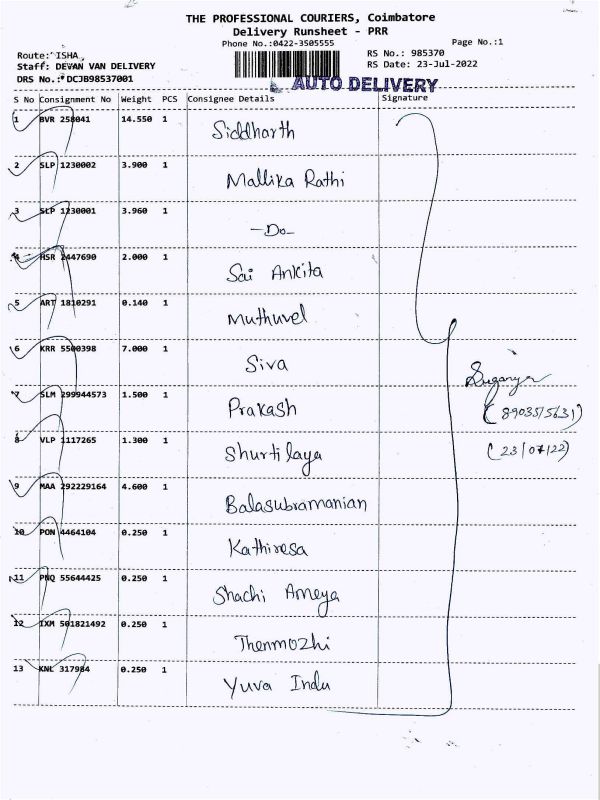 THE PROFESSIONAL COURIERS, Coimbatore
Delivery Runsheet - PRR
Phone No.:0422-3505555 Page No.:1
Route: ISHA,
RS No.: 985370
Staff: DEVAN VAN DELIVERY
RS Date: 23-Jul-2022
DRS No.: DCJB98537001
AUTO DELIVERY
S No Consignment No Weight PCS Consignee Details Signature
1 BVR 258041 14.550 1 Siddharth
2 SLP 1230002 3.900 1 Mallika Rathi
3 SLP 1230001 3.960 1 -Do-
4 HSR 2447690 2.000 1 Sai Ankita
5 ART 1810291 0.140 1 Muthuvel
6 KRR 5500398 7.000 1 Siva
Suganya
7 SLM 299944573 1.500 1 Prakash
(8903515631)
8 VLP 1117265 1.300 1 Shurtilaya
(23/07/22)
9 MAA 292229164 4.600 1 Balasubramanian
10 PON 4464104 0.250 1 Kathiresa
11 PNQ 55644425 0.250 1 Shachi Ameya
12 IXM 501821492 0.250 1 Thenmozhi
13 KNL 317984 0.250 1 Yuva Indu